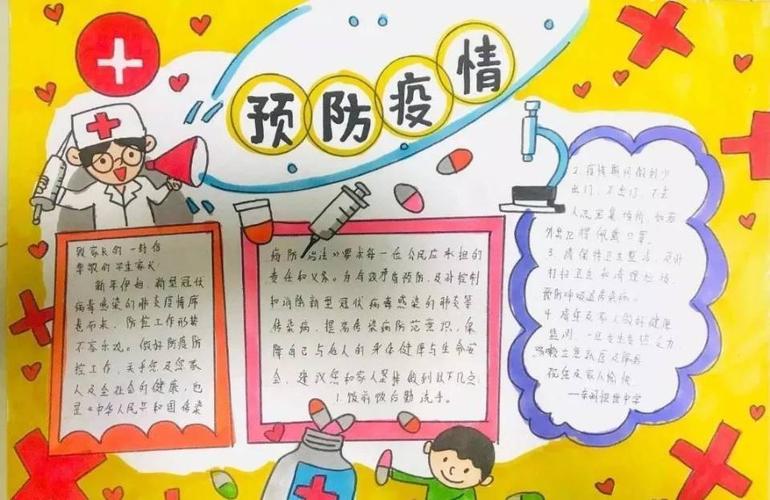 预防疫情
致家长的一封信
尊敬的学生家长:
新年伊始,新型冠状
病毒感染的肺炎疫情席
卷而来,防控工作形势
不容乐观。做好防疫防
控工作,关乎您及您家
人及全社会的健康,也
是《中华人民共和国传染
病防治法》要求每一位公民应承担的
责任和义务。为有效预防,及时控制
和消除新型冠状病毒感染的肺炎等
传染病,提高传染病防范意识,保
障自己与他人的身体健康与生命安
全,建议您和家人坚持做到以下几点:
1.饭前饭后勤洗手。
2.疫情期间做到少
出门,不出门,不去
人流密集场所,如若
外出记得佩戴口罩。
3.请保持卫生整洁,及时
打扫卫生和清理垃圾,
预防呼吸道传染病。
4.请您及家人做好健康
监测,一旦发生发热乏力
咳嗽立马
祝您及家人愉快